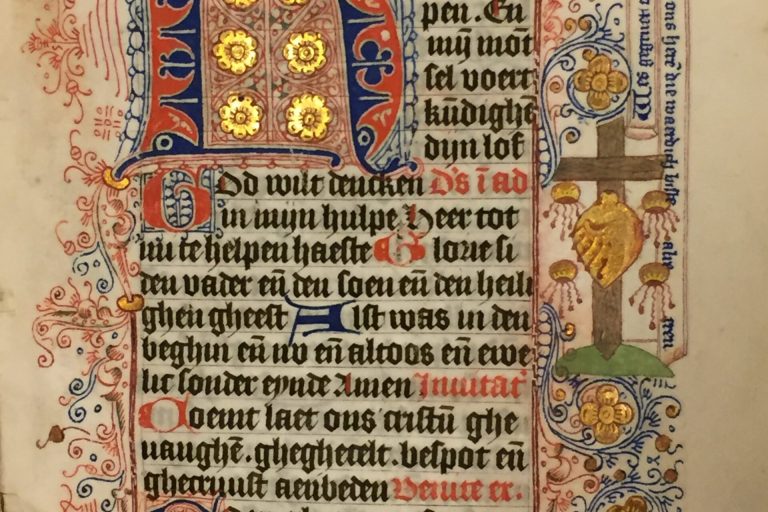 pen. En
mÿ mōt
sel voert
kūdighē
dyn lof
God wilt dencken D's ī ad
in mijn hulpe Heer tot
mi te helpen haeste Glorie si
den vader en̄ den soen en̄ den heili
ghen gheest Alst was in den
beghin en̄ nv en̄ altoos en̄ ewe
lic sonder eynde Amen Inuitat'
Coemt laet ons cristū ghe
uaughē. ghegheselt. bespot en̄
ghecruust aenbeden Venite ex.
ons heer die waerdich